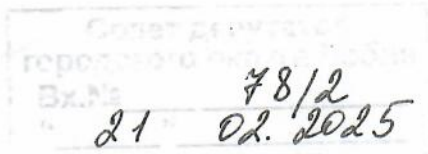 Совет депутатов
городского округа
Вх.№ 78/2
" 21 " 02. 2025